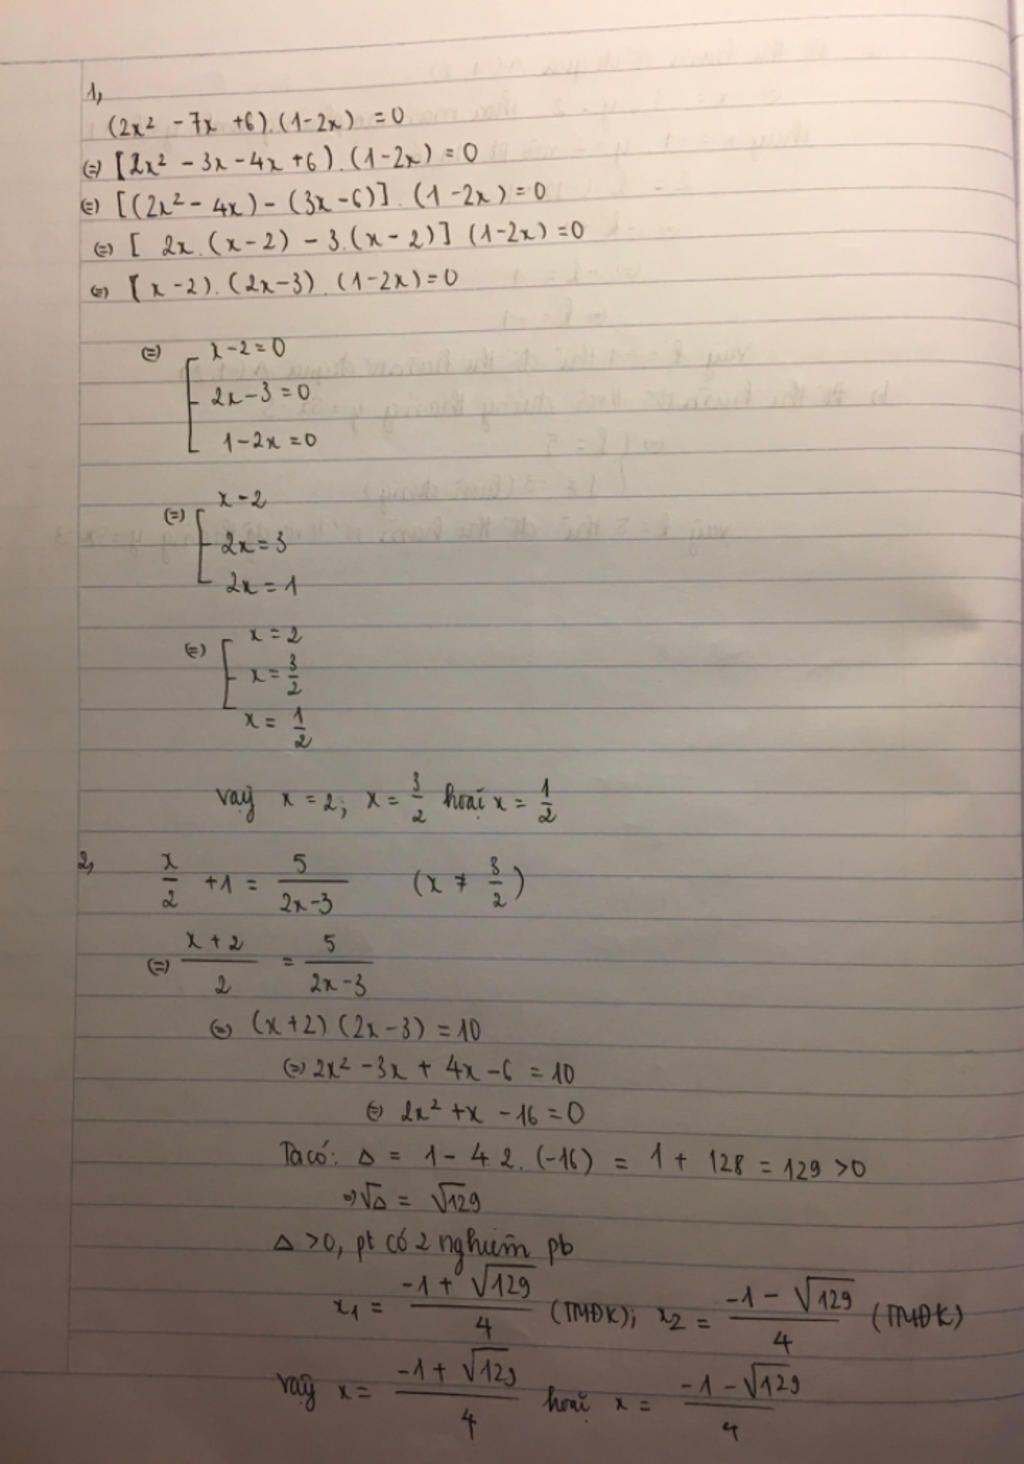 1,
(2x² - 7x + 6).(1-2x) = 0
(=) [2x² - 3x - 4x + 6).(1-2x) = 0
(=) [(2x² - 4x) - (3x - 6)].(1-2x) = 0
(=) [2x.(x-2) - 3.(x-2)] (1-2x) = 0
(=) [x-2).(2x-3).(1-2x) = 0
(=) [ x-2=0
2x-3=0
1-2x=0
(=) [ x-2
2x=3
2x=1
(=) [ x=2
x=3/2
x=1/2
vaỹ x=2; x=3/2 hoặc x=1/2
2, x/2 + 1 = 5/(2x-3) (x ≠ 3/2)
(=) (x+2)/2 = 5/(2x-3)
(=) (x+2)(2x-3) = 10
(=) 2x² - 3x + 4x - 6 = 10
(=) 2x² + x - 16 = 0
Ta có: Δ = 1 - 4 2.(-16) = 1 + 128 = 129 > 0
=) √Δ = √129
Δ > 0, pt có 2 nghiệm pb
x₁ = (-1 + √129)/4 (TMĐK); x₂ = (-1 - √129)/4 (TMĐK)
vaỹ x = (-1 + √129)/4 hoặc x = (-1 - √129)/4